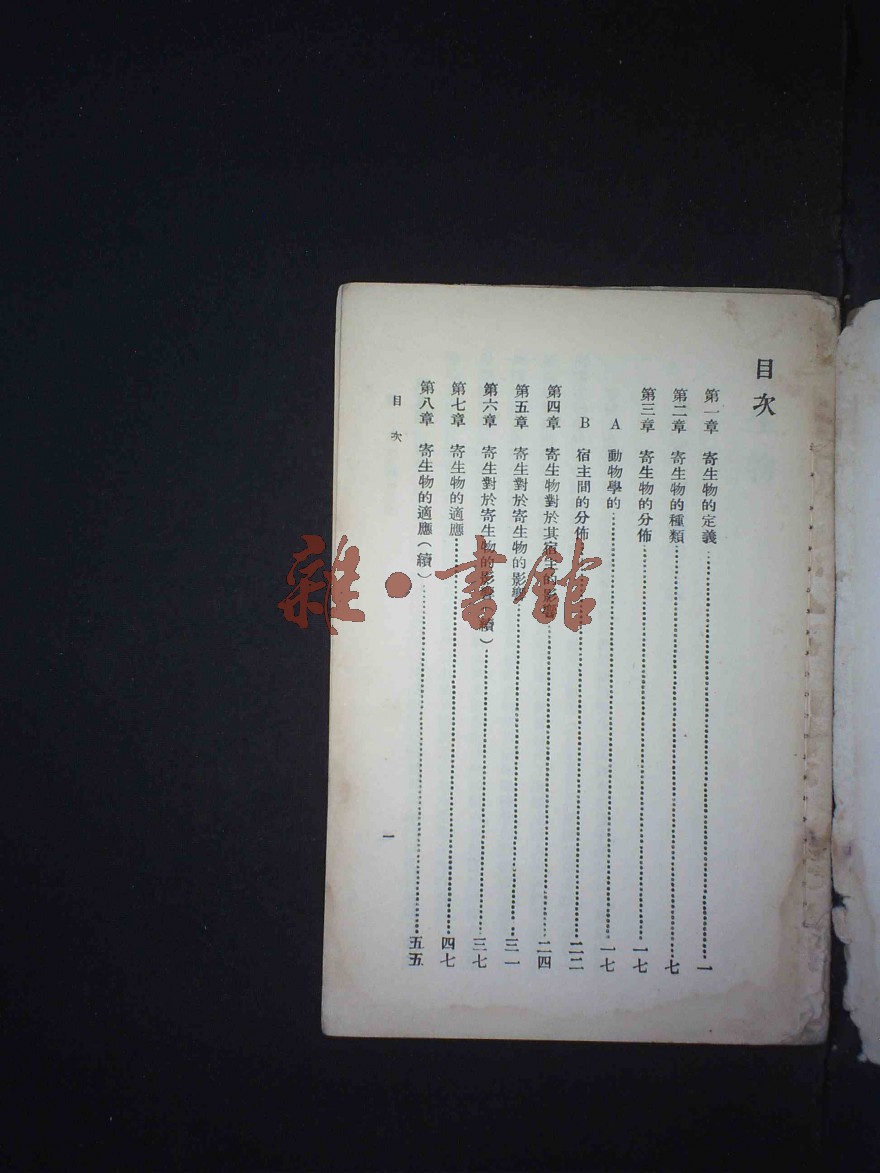 目次
第一章 寄生物的定義…………一
第二章 寄生物的種類…………七
第三章 寄生物的分佈…………一七
A 動物學的…………一七
B 宿主間的分佈…………二二
第四章 寄生物對於其宿主的影響…………二四
第五章 寄生對於寄生物的影響…………三一
第六章 寄生對於寄生物的影響（續）…………三七
第七章 寄生物的適應…………四七
第八章 寄生物的適應（續）…………五五
目次
一
雜·書館